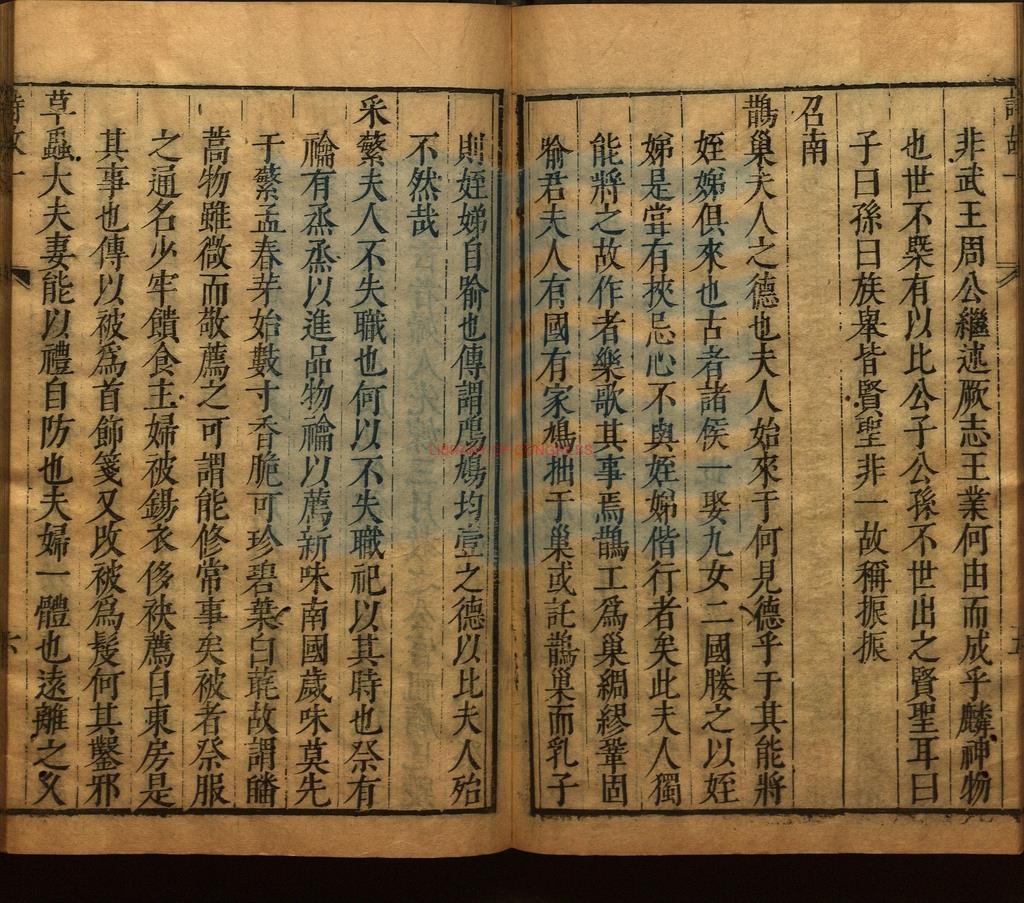 非武王周公繼述厥志王業何由而成乎麟神物
也世不槩有以比公子公孫不世出之賢聖耳曰
子曰孫曰族舉皆賢聖非一故稱振振
召南
鵲巢夫人之德也夫人始來于何見德乎于其能將
姪娣俱來也古者諸侯一娶九女二國媵之以姪
娣是嘗有挾忌心不與姪娣偕行者矣此夫人獨
能將之故作者樂歌其事焉鵲工爲巢綢繆鞏固
喻君夫人有國有家鳩拙于巢或託鵲巢而乳子
則姪娣自喻也傳謂鳲鳩均壹之德以比夫人殆
不然哉
采蘩夫人不失職也何以不失職祀以其時也祭有
禴有烝烝以進品物禴以薦新味南國歲味莫先
于蘩孟春芽始數寸香脆可珍碧葉白蒓故謂皤
蒿物雖微而敬薦之可謂能修常事矣被者祭服
之通名少牢饋食主婦被錫衣侈袂薦自東房是
其事也傳以被爲首飾箋又改被爲髲何其鑿邪
草蟲大夫妻能以禮自防也夫婦一體也遠離之义
詩故一
六
LIBRARY OF CONGRESS